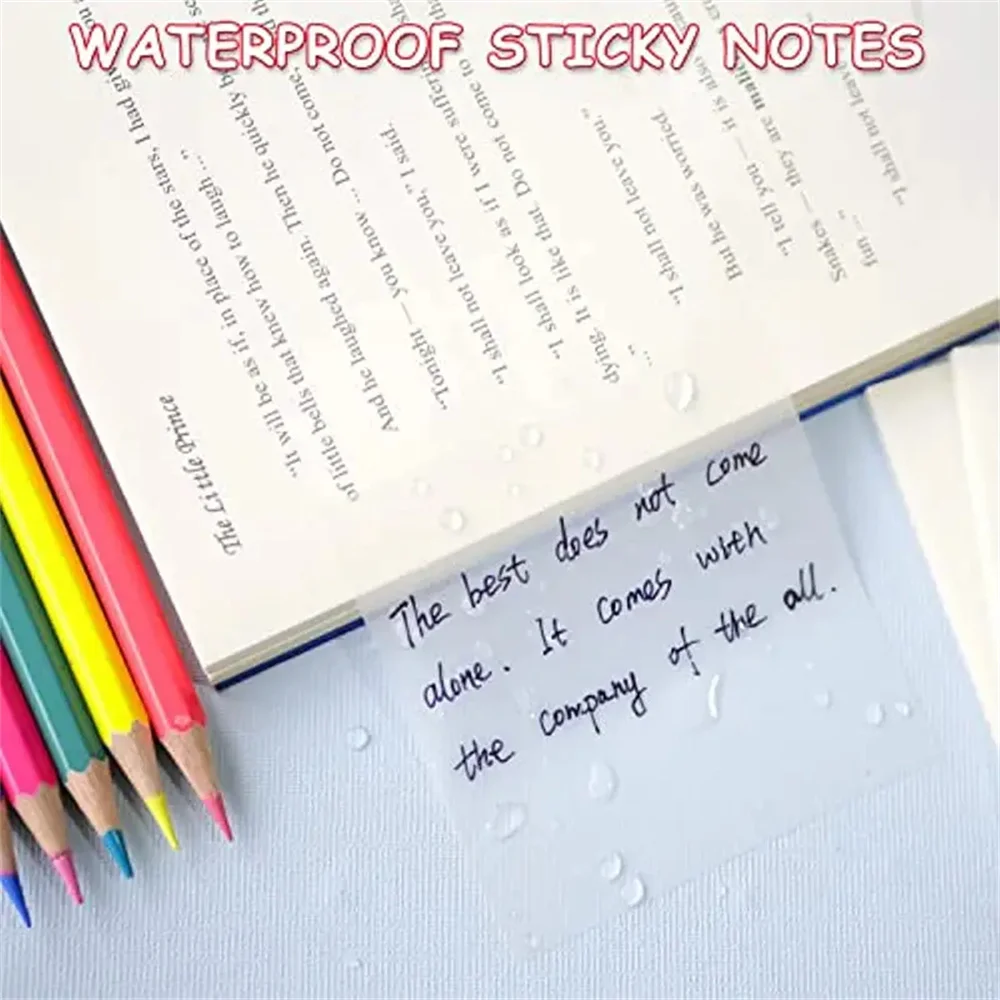 WATERPROOF STICKY NOTES
The Little Prince
"It will be as if, in place of the stars, I had giv
of little bells that knew how to laugh ..."
And he laughed again. Then he quickly b
"Tonight — you know ... Do not come,
"I shall not leave you," I said.
"I shall look as if I were sufferin
dying. It is like that. Do not come to
..."
"I shall not leave you."
But he was worried.
"I tell you — it is also
Snakes — they are
fun — ..."
"I shall not leav
The best does not come
alone. It comes with
the company of the all.